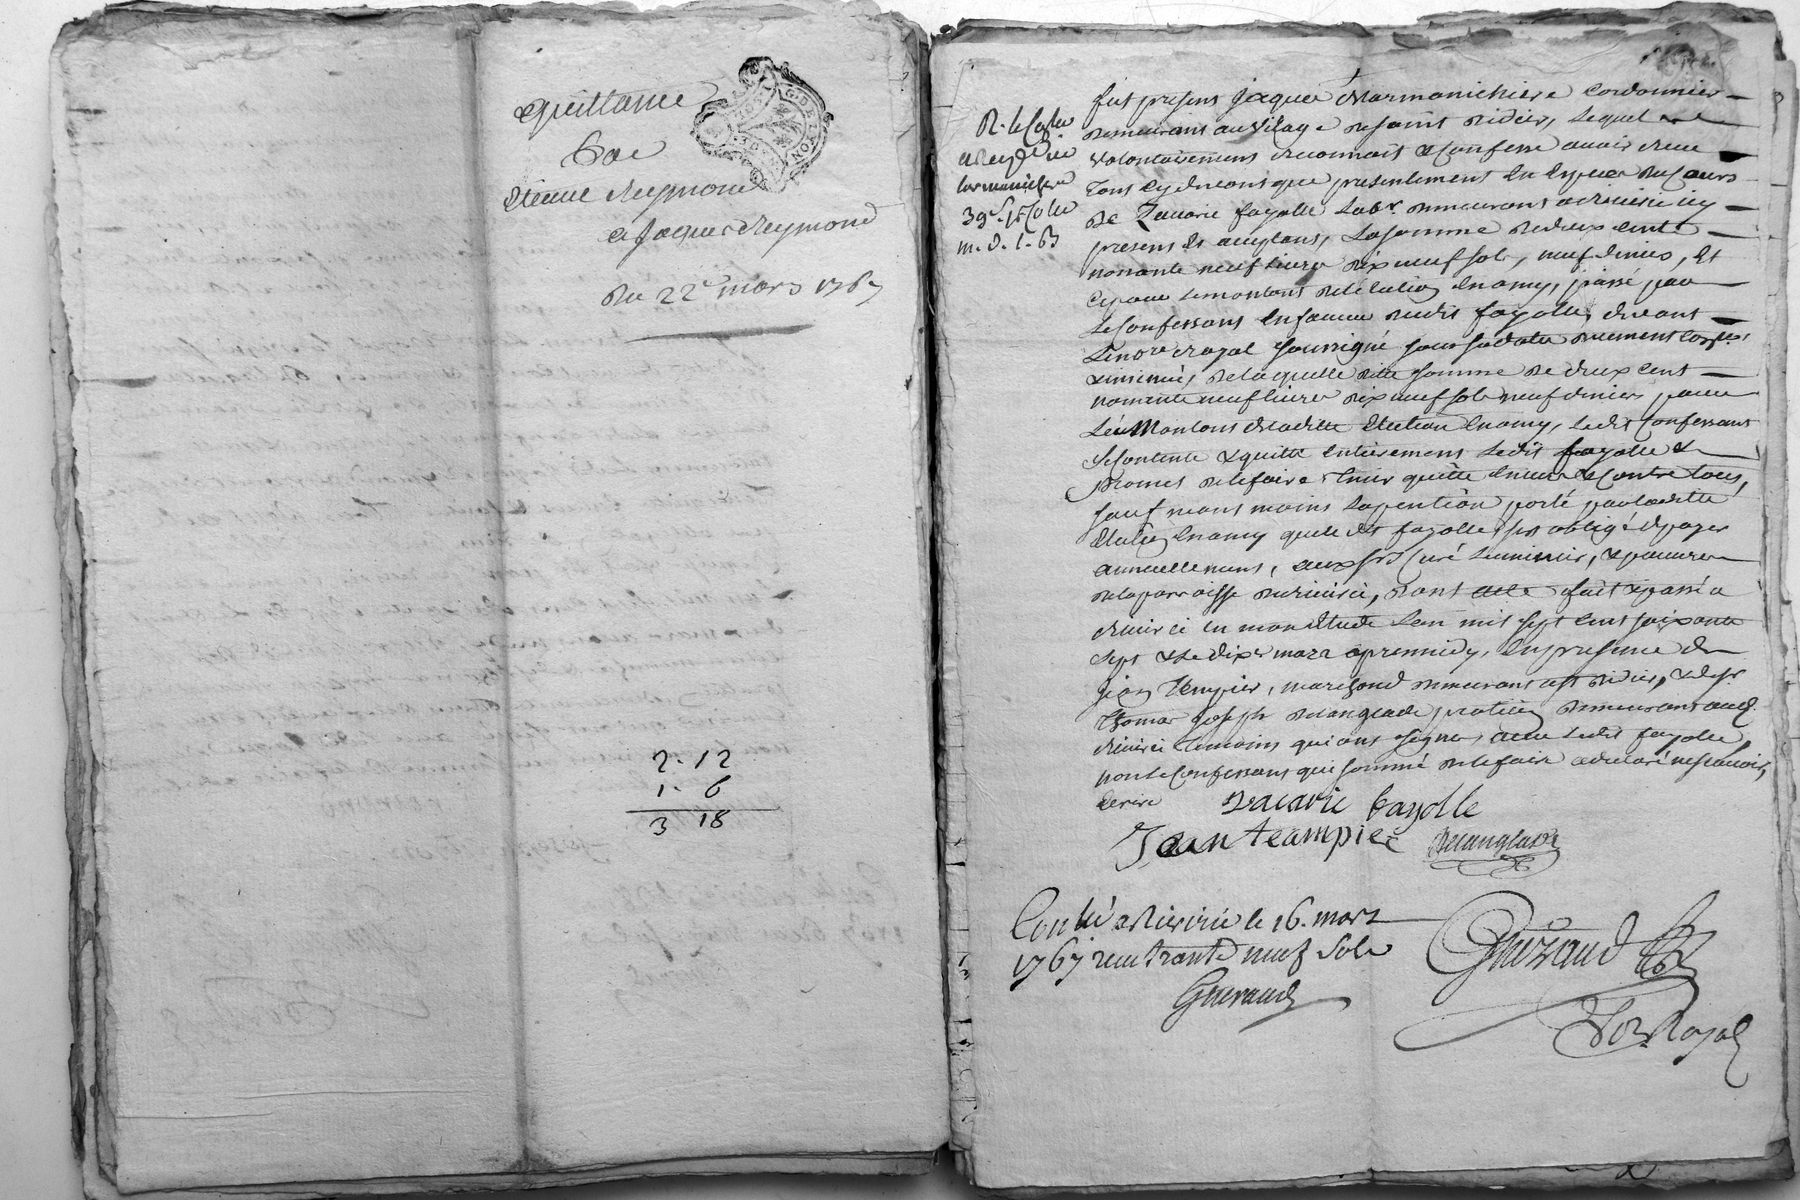 Quittance
Par
Etienne Reymond
a Jaques Reymond
Du 22e mars 1767
G. DE LYON
2. 12
1. 6
3 18
fut present Jaques Marmonichere Cordonnier
demeurant au vilage de saint Didier, Lequel
volontairement reconnait & Confesse avoir receu
tout cy devant que presentement en especes de cours
De Zacarie fayolle Labr. demeurant a
present & aceptant, La somme de deux cents
nonante neuf livres dix neuf sols, neuf deniers, Et
Ce pour le montant de l'élection enamy, passé par
Le Confessant en faveur dudit fayolle, devant
Le nore royal soussigné sous sa datte duement
de laquelle ditte somme de deux cent
nonante neuf livres dix neuf sols neuf deniers pour
Le montant de laditte Election enamy, Ledit Confessant
Se Contente & quitte entierement Ledit fayolle &
promet de le faire tenir quitte envers & Contre tous,
sauf neant moins la pention porté par laditte
enamy que ledit fayolle est obligé de payer
annuellement, aux srs Curé Luminier, & pauvres
de la parroisse de riverie, dont acte fait & passé a
riverie en mon Etude L'an mil sept cent soixante
sept & le dixe mars apres midy, en presence de
Jean Tempier, marchand demeurant a st Didier, & de sr
Thomas Joseph Delanglade praticien demeurant aud.
riverie temoins qui ont signés avec Ledit fayolle
non le Confessant qui sommé de le faire a declaré ne scavoir,
ecrire
Zacarie Fayolle
Jean teampier Delanglade
Conllé a Riverie le 16. mars
1767 receu trante neuf sols
Gueraud
Gueraud
Nore Royal